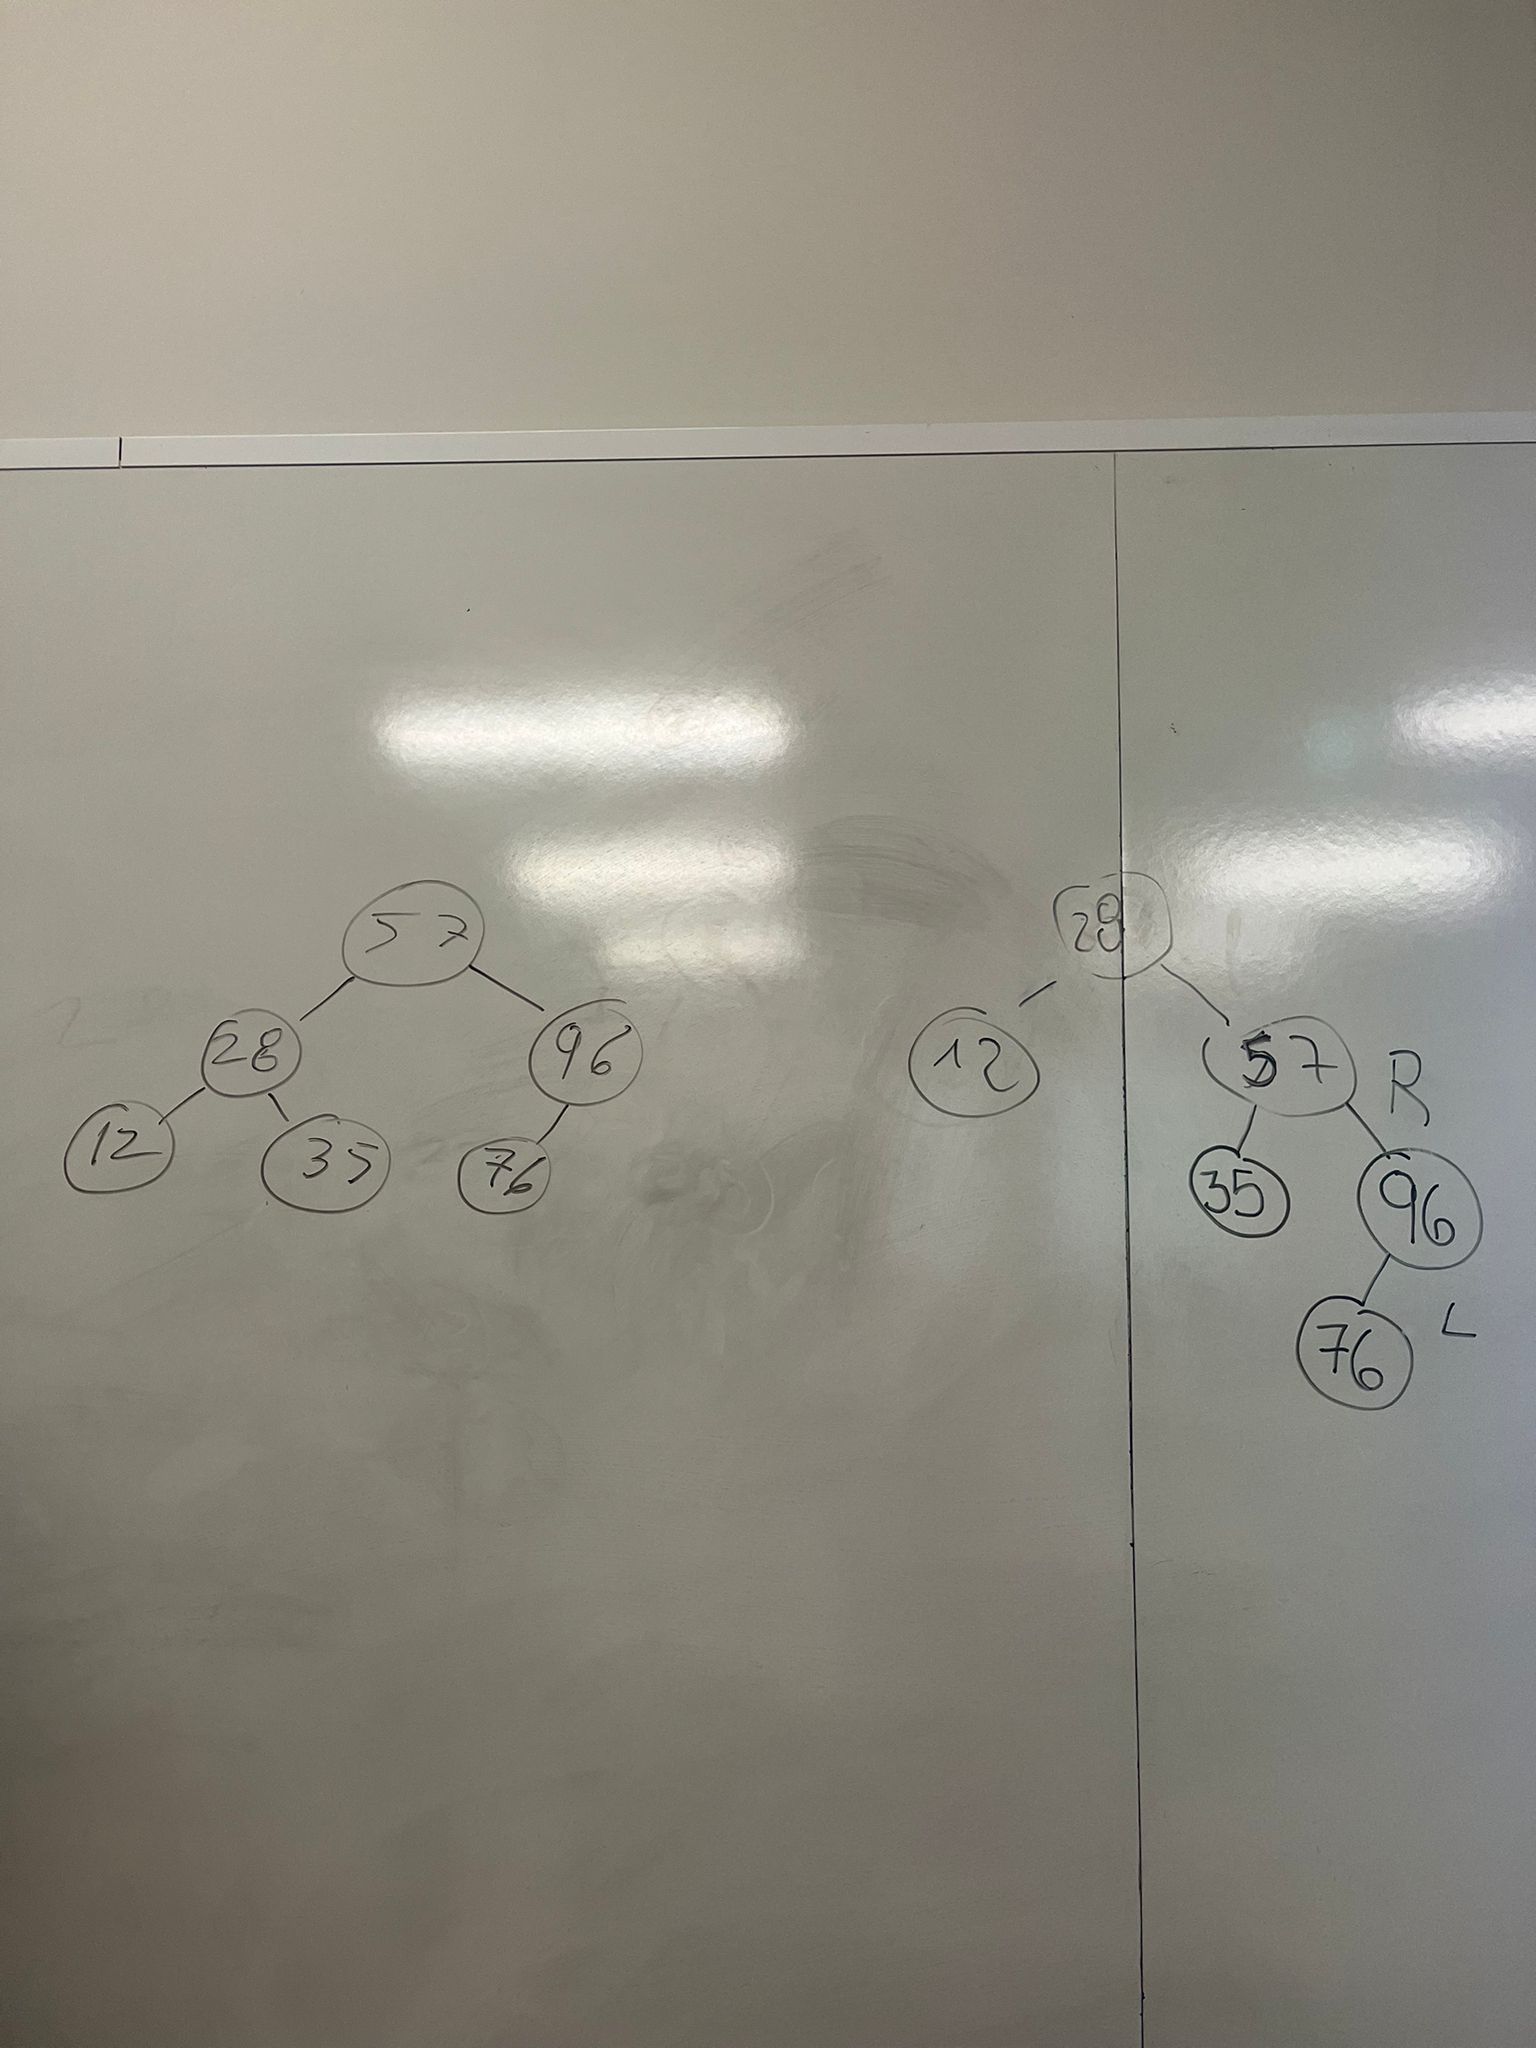 57
28 96
12 35 76
28
12 57 R
35 96
76 L